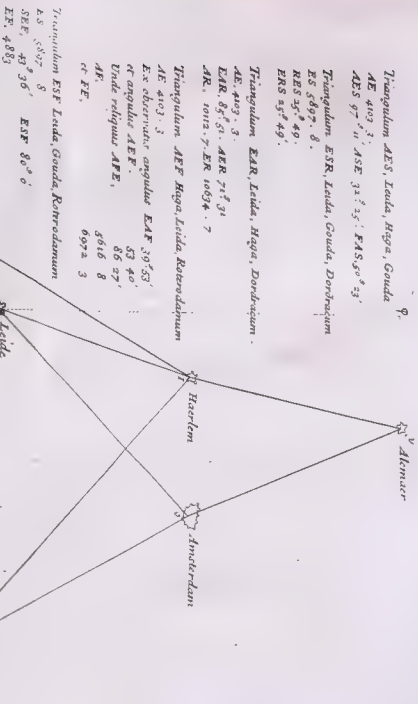 Triangulum AES, Leida, Haga, Gouda
AE 4103. 3.
AES 97° 11' ASE 32° 25' FAS. 50° 23'
Triangulum ESR, Leida, Gouda, Dordracum
ES 5897. 8.
RES 25° 49'.
ERS 25° 49'.
Triangulum EAR, Leida, Haga, Dordracum.
AE. 4103. 3.
EAR. 85° 51. AER 71° 31
AR. 10112. 7. ER 10634. 7
Triangulum AEF Haga, Leida, Roterodamum
AE 4103. 3
Ex observatis angulus EAF 39° 53'
et angulus AEF. 53 40'
Unde reliquus AFE, 86 27'
AF. 5616 8
et FE, 6972 3
Triangulum ESF Leida, Gouda, Roterodamum
ES 5897 8
SEF. 43° 36' ESF 80° 0'
EF. 4883
Alcmaer
Haerlem
Amsterdam
Leide